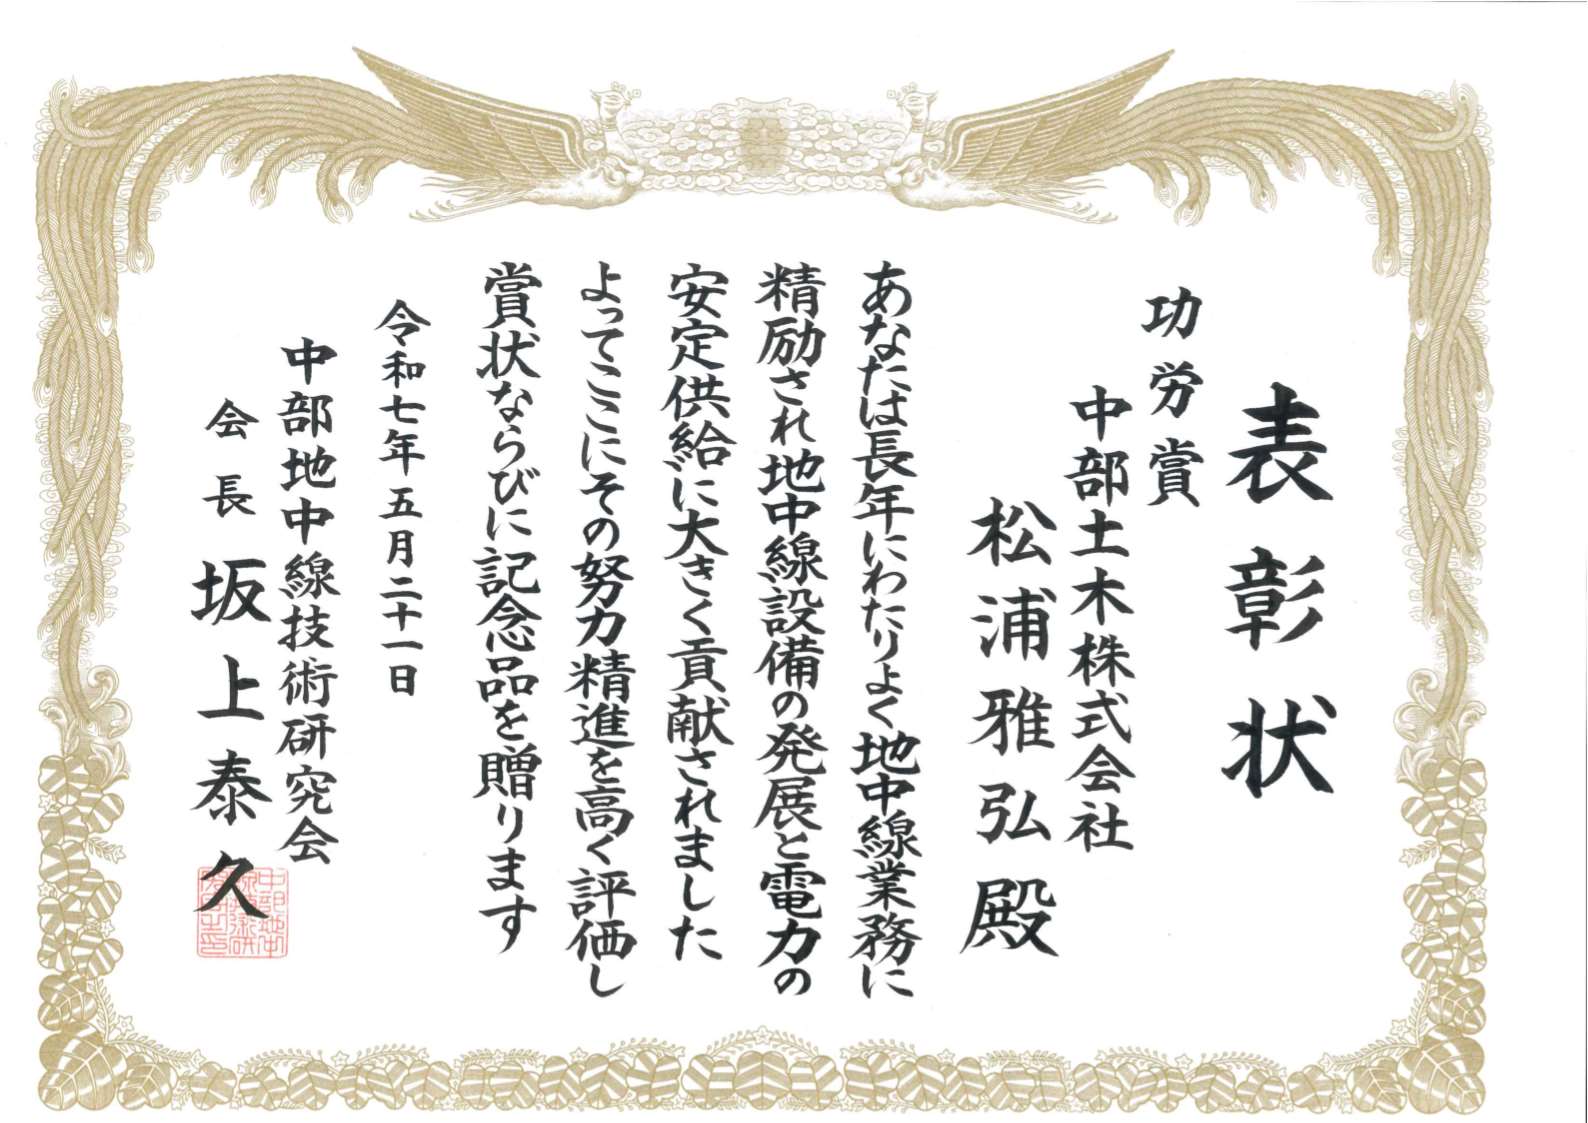 表彰状
功労賞
中部土木株式会社
松浦雅弘殿
あなたは長年にわたりよく地中線業務に
精励され地中線設備の発展と電力の
安定供給に大きく貢献されました
よってここにその努力精進を高く評価し
賞状ならびに記念品を贈ります
令和七年五月二十一日
中部地中線技術研究会
会長 坂上泰久